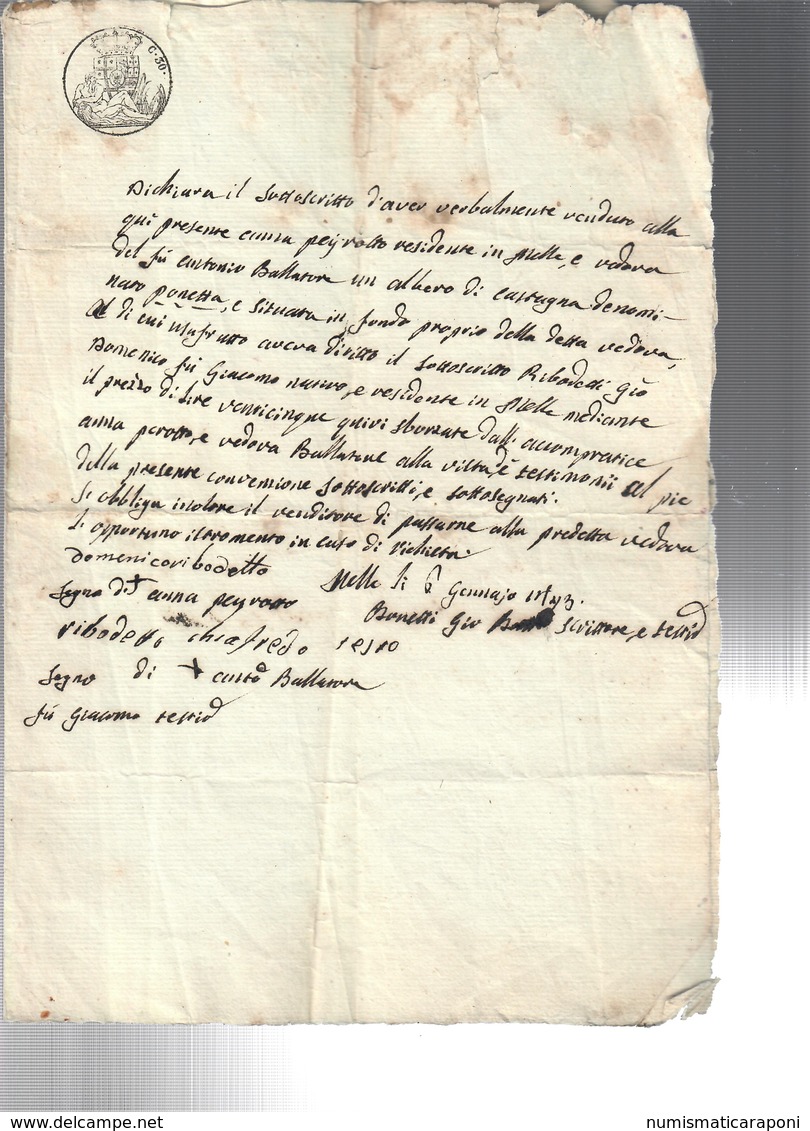 C. 50.
Dichiara il Sottoscritto d'aver verbalmente venduto alla
qui presente anna peyrotto residente in Melle, e vedova
del fû antonio Ballatore un albero di castagna denomi-
nato ponetta, e situata in fondo proprio della detta vedova,
di cui usufrutto aveva diritto il Sottoscritto Ribodetti Gio
Domenico fû Giacomo nativo, e residente in Melle mediante
il prezzo di lire venticinque quivi sborzate dall' accompratice
anna perotto, e vedova Ballatore alla vista, e testimonii al pie
della presente convenzione sottoscritti, e sottosegnati.
Si obbliga inolore il venditore di passarne alla predetta vedova
opportuno istromento in caso di richiesta.
Melle li 6 Gennajo
domenico ribodetto
Segno di + anna peyrotto
Bonetti Gio Scrittore, e
ribodetto chiafredo
Segno di + Ballatore
fû Giacomo
delcampe.net
numismaticaraponi